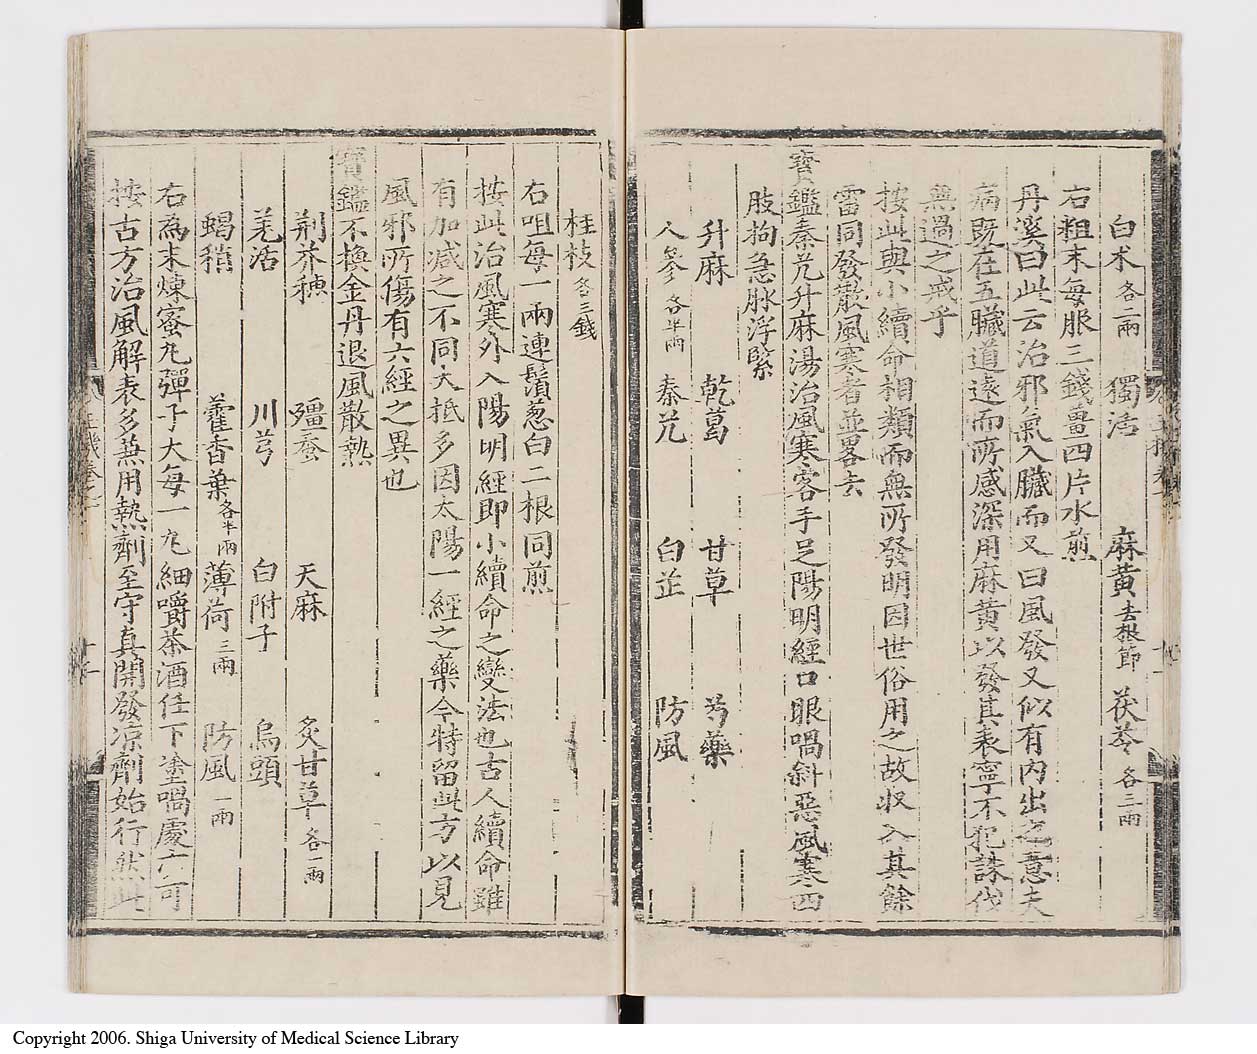 白朮各二兩 獨活 麻黃去根節 茯苓各三兩
右粗末每服二錢畺四片水煎
丹溪曰此云治邪氣入臟而又曰風發又似有内出之意夫
病既在五臟道遠而所感深用麻黃以發其表寧不犯誅伐
無過之戒乎
按此與小續命相類而無所發明因世俗用之故収入其餘
雷同發散風寒者並畧去
寶鑑秦艽升麻湯治風寒客手足陽明經口眼喎斜惡風寒四
肢拘急脉浮緊
升麻 乾葛 甘草 芍藥
人參各半兩 秦艽 白芷 防風
桂枝各三錢
右咀每一兩連鬚葱白二根同煎
按此治風寒外入陽明經即小續命之變法也古人續命雖
有加减之不同大抵多因太陽一經之藥今特留此方以見
風邪所傷有六經之異也
寶鑑不換金丹退風散熱
荆芥穗 殭蚕 天麻 炙甘草各一兩
羌活 川芎 白附子 烏頭
蝎稍 藿香葉各半兩 薄荷三兩 防風一兩
右為末煉蜜丸彈子大每一丸細嚼茶酒任下塗喎處亦可
按古方治風解表多兼用熱劑至守真開發凉劑始行然此
Copyright 2006. Shiga University of Medical Science Library